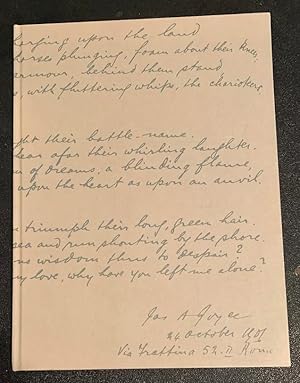 charging upon the land
horses plunging, foam about their knees,
armour, behind them stand
, with fluttering whips, the charioteers.
ght their battle-name.
hear afar their whirling laughter.
of dreams, a blinding flame,
upon the heart as upon an anvil.
triumph their long, green hair.
sea and run shouting by the shore.
no wisdom thus to despair?
my love, why have you left me alone?
Jas A Joyce
24 October
Via Frattina 52. II Rome